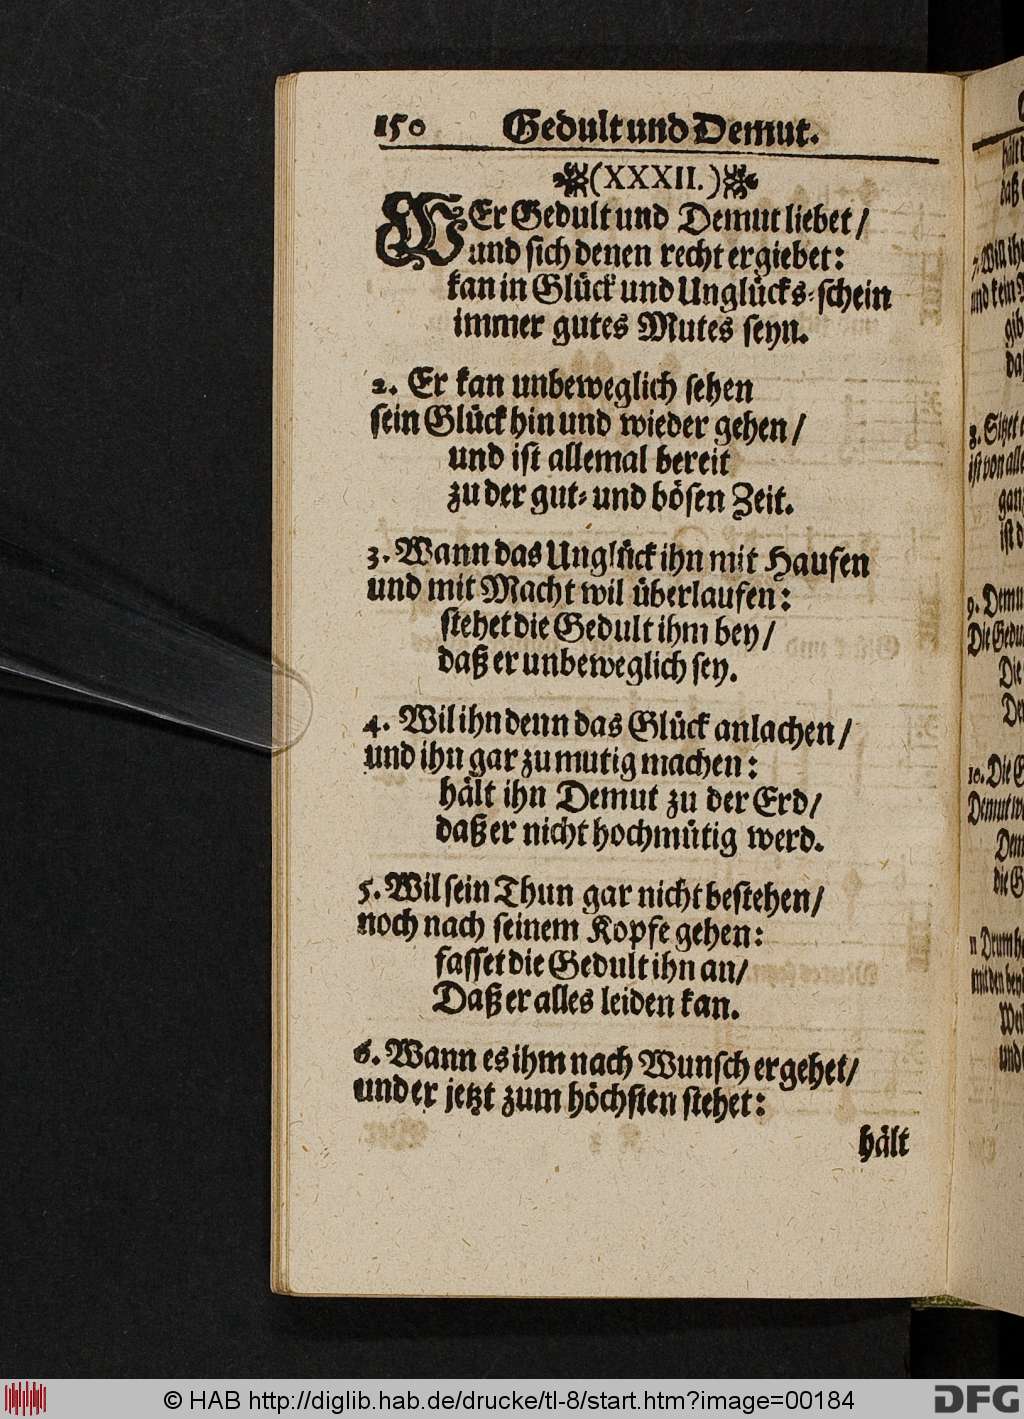 150 Gedult und Demut.
(XXXII.)
WEr Gedult und Demut liebet/
und sich denen recht ergiebet:
kan in Glück und Unglücks-schein
immer gutes Mutes seyn.
2. Er kan unbeweglich sehen
sein Glück hin und wieder gehen/
und ist allemal bereit
zu der gut- und bösen Zeit.
3. Wann das Unglück ihn mit Haufen
und mit Macht wil überlaufen:
stehet die Gedult ihm bey/
daß er unbeweglich sey.
4. Wil ihn denn das Glück anlachen/
und ihn gar zu mutig machen:
hält ihn Demut zu der Erd/
daß er nicht hochmütig werd.
5. Wil sein Thun gar nicht bestehen/
noch nach seinem Kopfe gehen:
fasset die Gedult ihn an/
Daß er alles leiden kan.
6. Wann es ihm nach Wunsch ergehet/
und er jetzt zum höchsten stehet:
hält
© HAB http://diglib.hab.de/drucke/tl-8/start.htm?image=00184
DFG